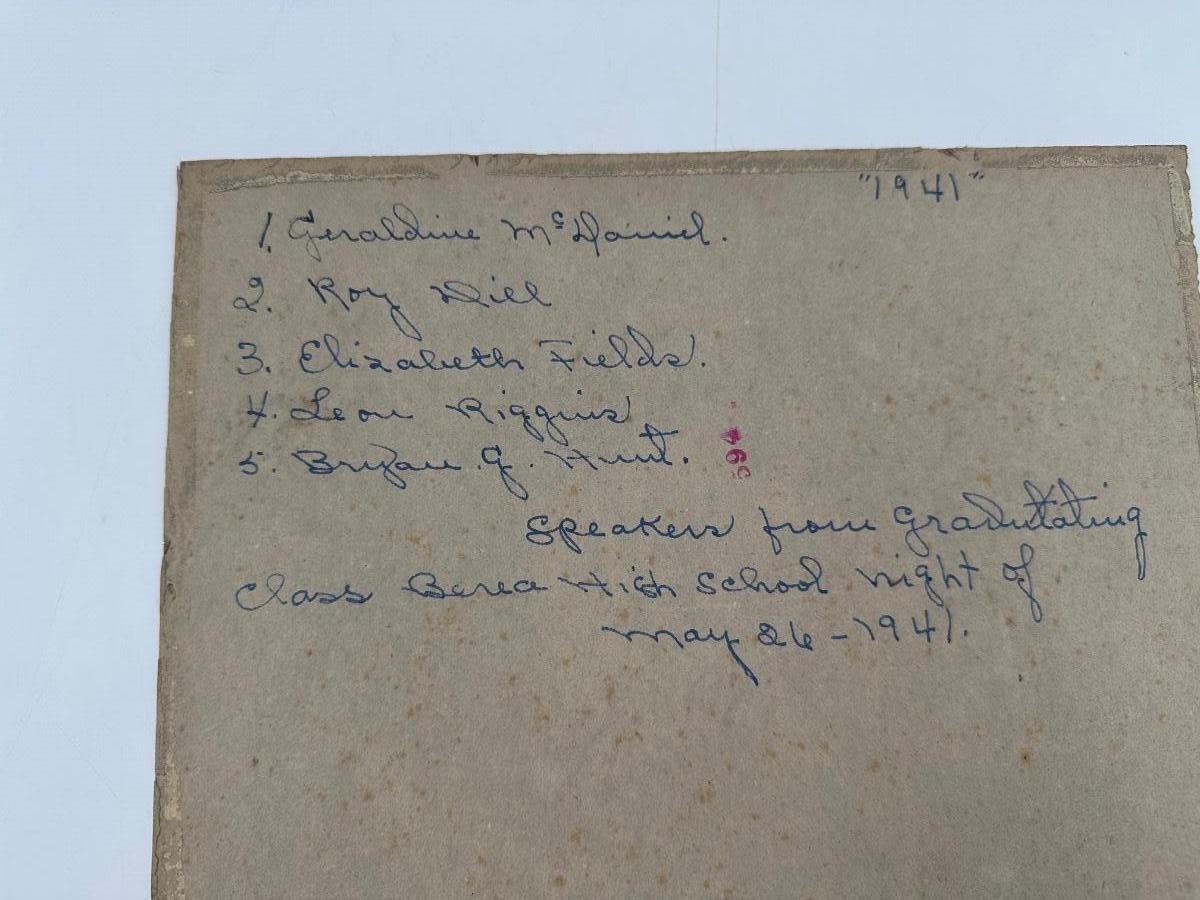 "1941"
1. Geraldine McDaniel.
2. Roy Dill
3. Elizabeth Fields.
4. Leon Riggins
5. Bryan G. Hunt.
Speakers from Gradutating
Class Berea High School night of
May 26-1941.